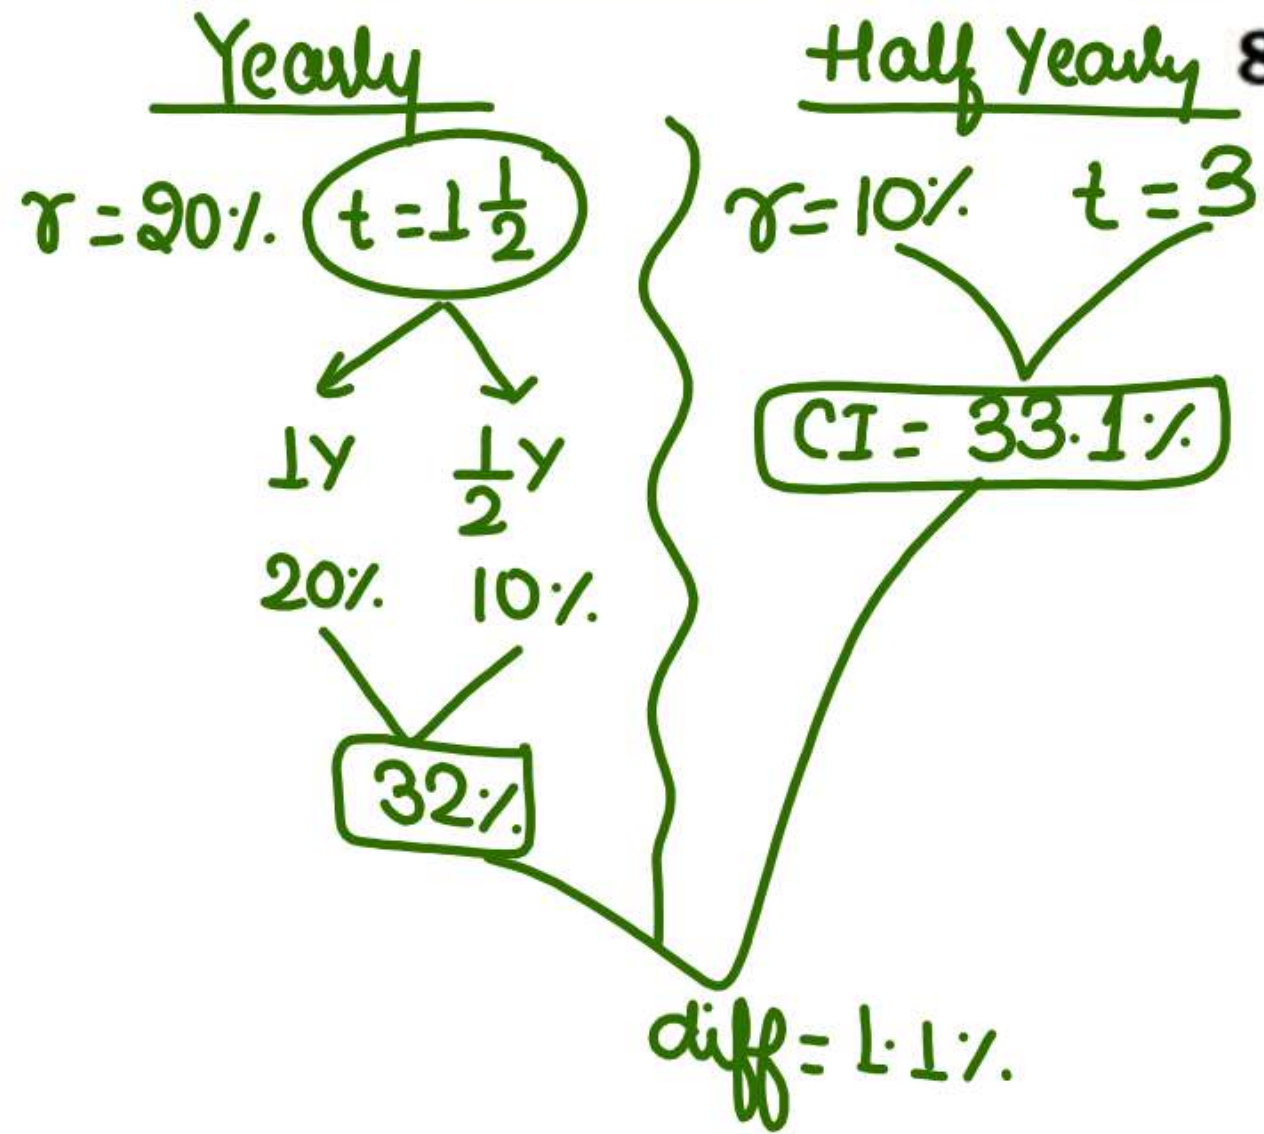 Yearly
r = 20% t = 1 1/2
1Y 1/2 Y
20% 10%
32%
Half Yearly 8
r = 10% t = 3
CI = 33.1%
diff = 1.1%.